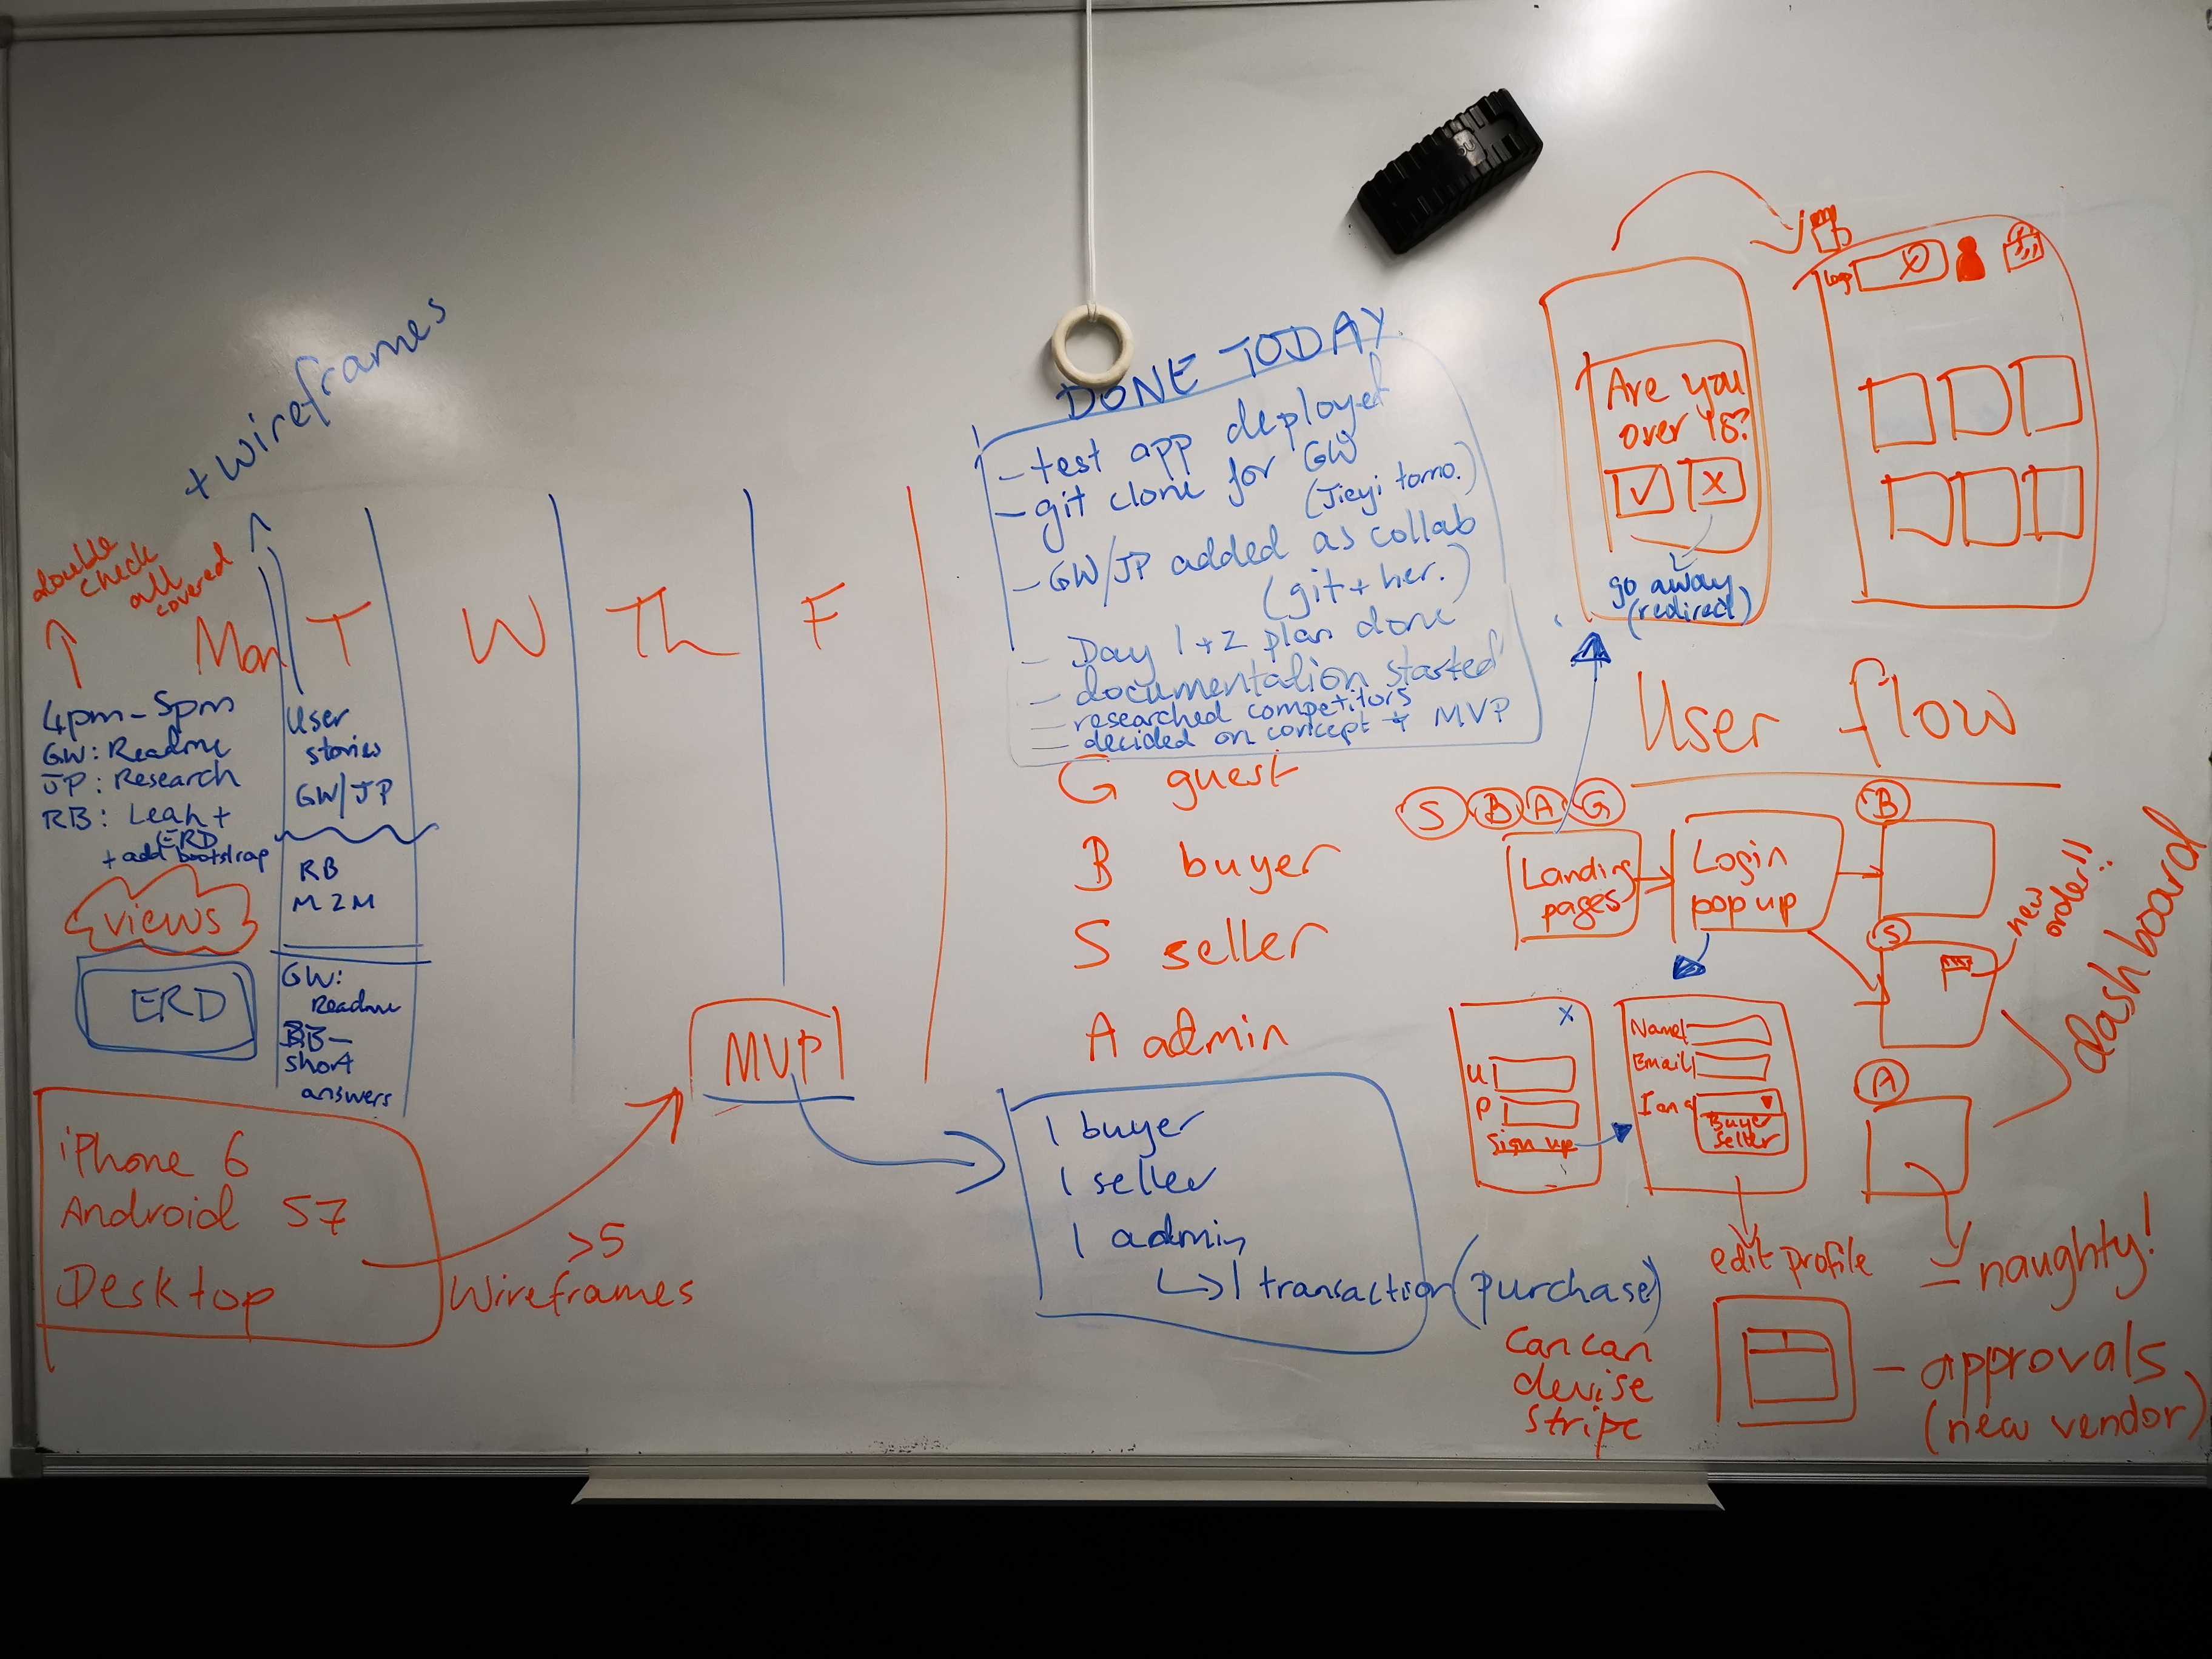 + wireframes
double
check
all
covered
Mon T W Th F
4pm - 5pm
GW: Readme
JP: Research
RB: Leah +
ERD
+ add bootstrap
views
ERD
User
stories
GW/JP
RB
M2M
GW:
Readme
RB-
short
answers
iPhone 6
Android S7
Desktop
>5
wireframes
MVP
DONE TODAY
- test app deployed
- git clone for GW
(Jieyi tomo.)
- GW/JP added as collab
(git + her.)
- Day 1+2 plan done
- documentation started
- researched competitors
- decided on concept + MVP
G guest
B buyer
S seller
A admin
1 buyer
1 seller
1 admin
↳ 1 transaction (purchase)
cancan
devise
stripe
Are you
over 18?
✓ X
go away
(redirect)
Logo
User flow
S B A G
Landing
pages
Login
pop up
B
S
new
order!!
A
dashboard
X
U
P
Sign up
Name
Email
I am a
Buyer
Seller
edit profile
- naughty!
- approvals
(new vendor)